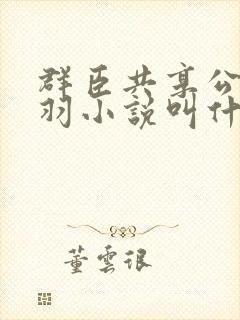 群臣共享公
羽小說叫什
董雲銀